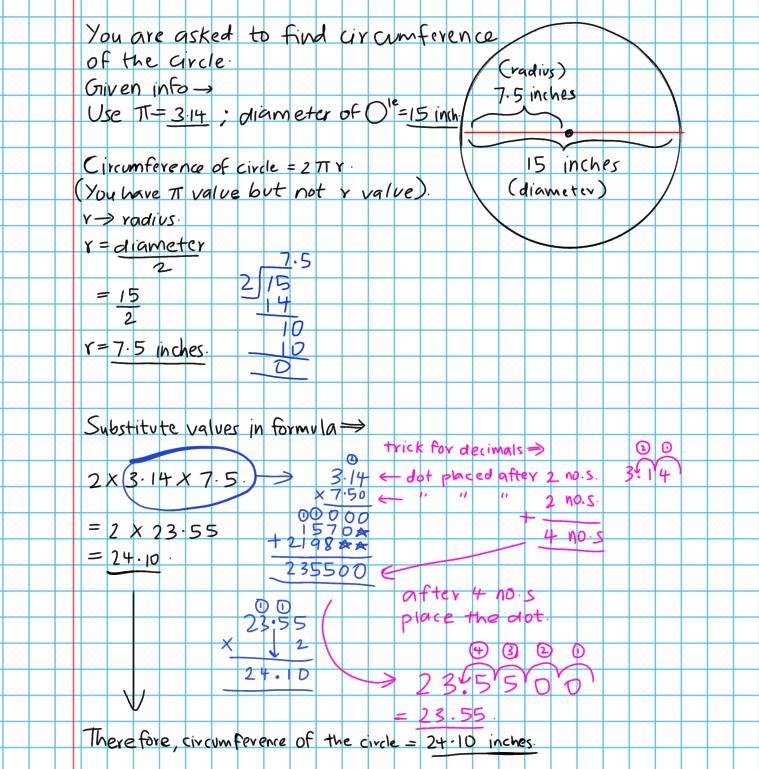 You are asked to find circumference
of the circle.
Given info →
Use π = 3.14 ; diameter of O^le = 15 inch.
(radius)
7.5 inches
15 inches
(diameter)
Circumference of circle = 2πr.
(You have π value but not r value).
r → radius.
r = diameter
2
= 15
2
r = 7.5 inches.
7.5
2 15
14
10
10
0
Substitute values in formula ⇒
2 × 3.14 × 7.5. →
= 2 × 23.55
= 24.10.
②
3.14
× 7.50
①①000
1570☆
+ 2198☆☆
235500
trick for decimals ⇒
← dot placed after 2 no.s.
← " " " 2 no.s.
+
4 no.s
② ①
3.14
after 4 no.s
place the dot.
① ①
23.55
× 2
24.10
④ ③ ② ①
23.5500
= 23.55.
Therefore, circumference of the circle = 24.10 inches.